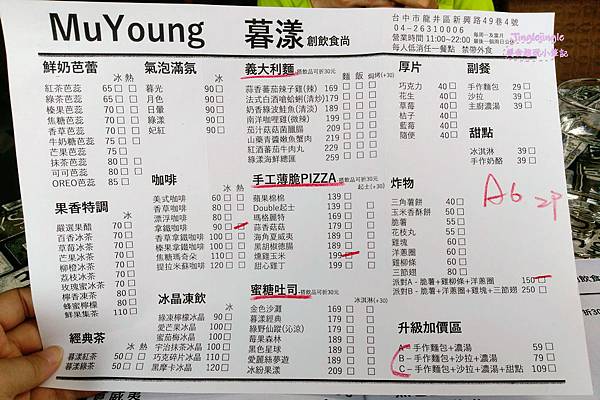 MuYoung 暮漾 創飲食尚
台中市龍井區新興路49巷4號
04-26310006
營業時間 11:00~22:00
每人低消任一餐點 禁帶外食
Jinglejingle
鮮奶芭蕾 冰 熱
紅茶芭蕊 65
綠茶芭蕊 65
榛果芭蕊 70
焦糖芭蕊 70
香草芭蕊 70
牛奶糖芭蕊 75
芒果芭蕊 75
抹茶芭蕊 80
可可芭蕊 80
OREO芭蕊 85
果香特調
嚴選果醋 70
百香冰茶 70
草莓冰茶 70
芒果冰茶 70
柳橙冰茶 70
荔枝冰茶 70
玫瑰冰茶 70
檸香凍茶 80
蜂蜜檸檬 80
鮮果集茶 110
經典茶 冰 熱
暮漾紅茶 50
暮漾綠茶 50
氣泡滿氛 冰
暮光 90
月色 90
日暈 90
綠光 90
妃紅 90
咖啡 冰 熱
美式咖啡 60
香草咖啡 80
漂浮咖啡 90
拿鐵咖啡 90
香草拿鐵咖啡 100
榛果拿鐵咖啡 100
焦糖瑪奇朵 110
提拉米蘇咖啡 120
冰晶凍飲
綠凍檸檬冰晶 90
愛芒果冰晶 100
蜜茄梅冰晶 100
宇治抹茶冰晶 100
巧克碎片冰晶 110
黑摩卡冰晶 120
義大利麵 搭飲品可折30元 麵 飯 焗烤(+30)
蒜香蕃茄辣子雞(辣) 169
法式白酒嗆蛤蜊(清炒) 179
奶香綠波鮭魚(清淡) 189
南洋咖哩雞(微辣) 189
茄汁菇菇茵臘腸 209
山藥青醬嫩魚蟹肉 219
紅酒蕃茄牛肉丸 229
綠漾海鮮總匯 259
手工薄脆PIZZA 搭飲品可折30元 起士(+30)
蘋果棉棉 139
Double起士 139
瑪格麗特 169
蒜香菇菇 179
海角夏威夷 179
黑胡椒德腸 189
燻雞玉米 199
甜心雞丁 199
蜜糖吐司 搭飲品可折30元 冰淇淋(+30)
金色沙灘 169
暮漾經典 179
綠野仙蹤(沁涼) 179
莓果森林 189
黑色星球 189
愛麗絲夢遊 189
冰紛果漾 209
厚片
巧克力 40
花生 40
草莓 40
桔子 40
藍莓 40
隨便 40
副餐
手作麵包 29
沙拉 39
主廚濃湯 39
甜點
冰淇淋 39
手作奶酪 39
A6 2P
炸物
三角薯餅 40
玉米香酥餅 50
脆薯 55
花枝丸 55
雞塊 60
洋蔥圈 60
雞柳條 60
三節翅 80
派對A-脆薯+雞柳條+洋蔥圈 150
派對B-脆薯+洋蔥圈+雞塊+三節翅 250
升級加價區
A-手作麵包+濃湯 59
B-手作麵包+沙拉+濃湯 79
C-手作麵包+沙拉+濃湯+甜點 109